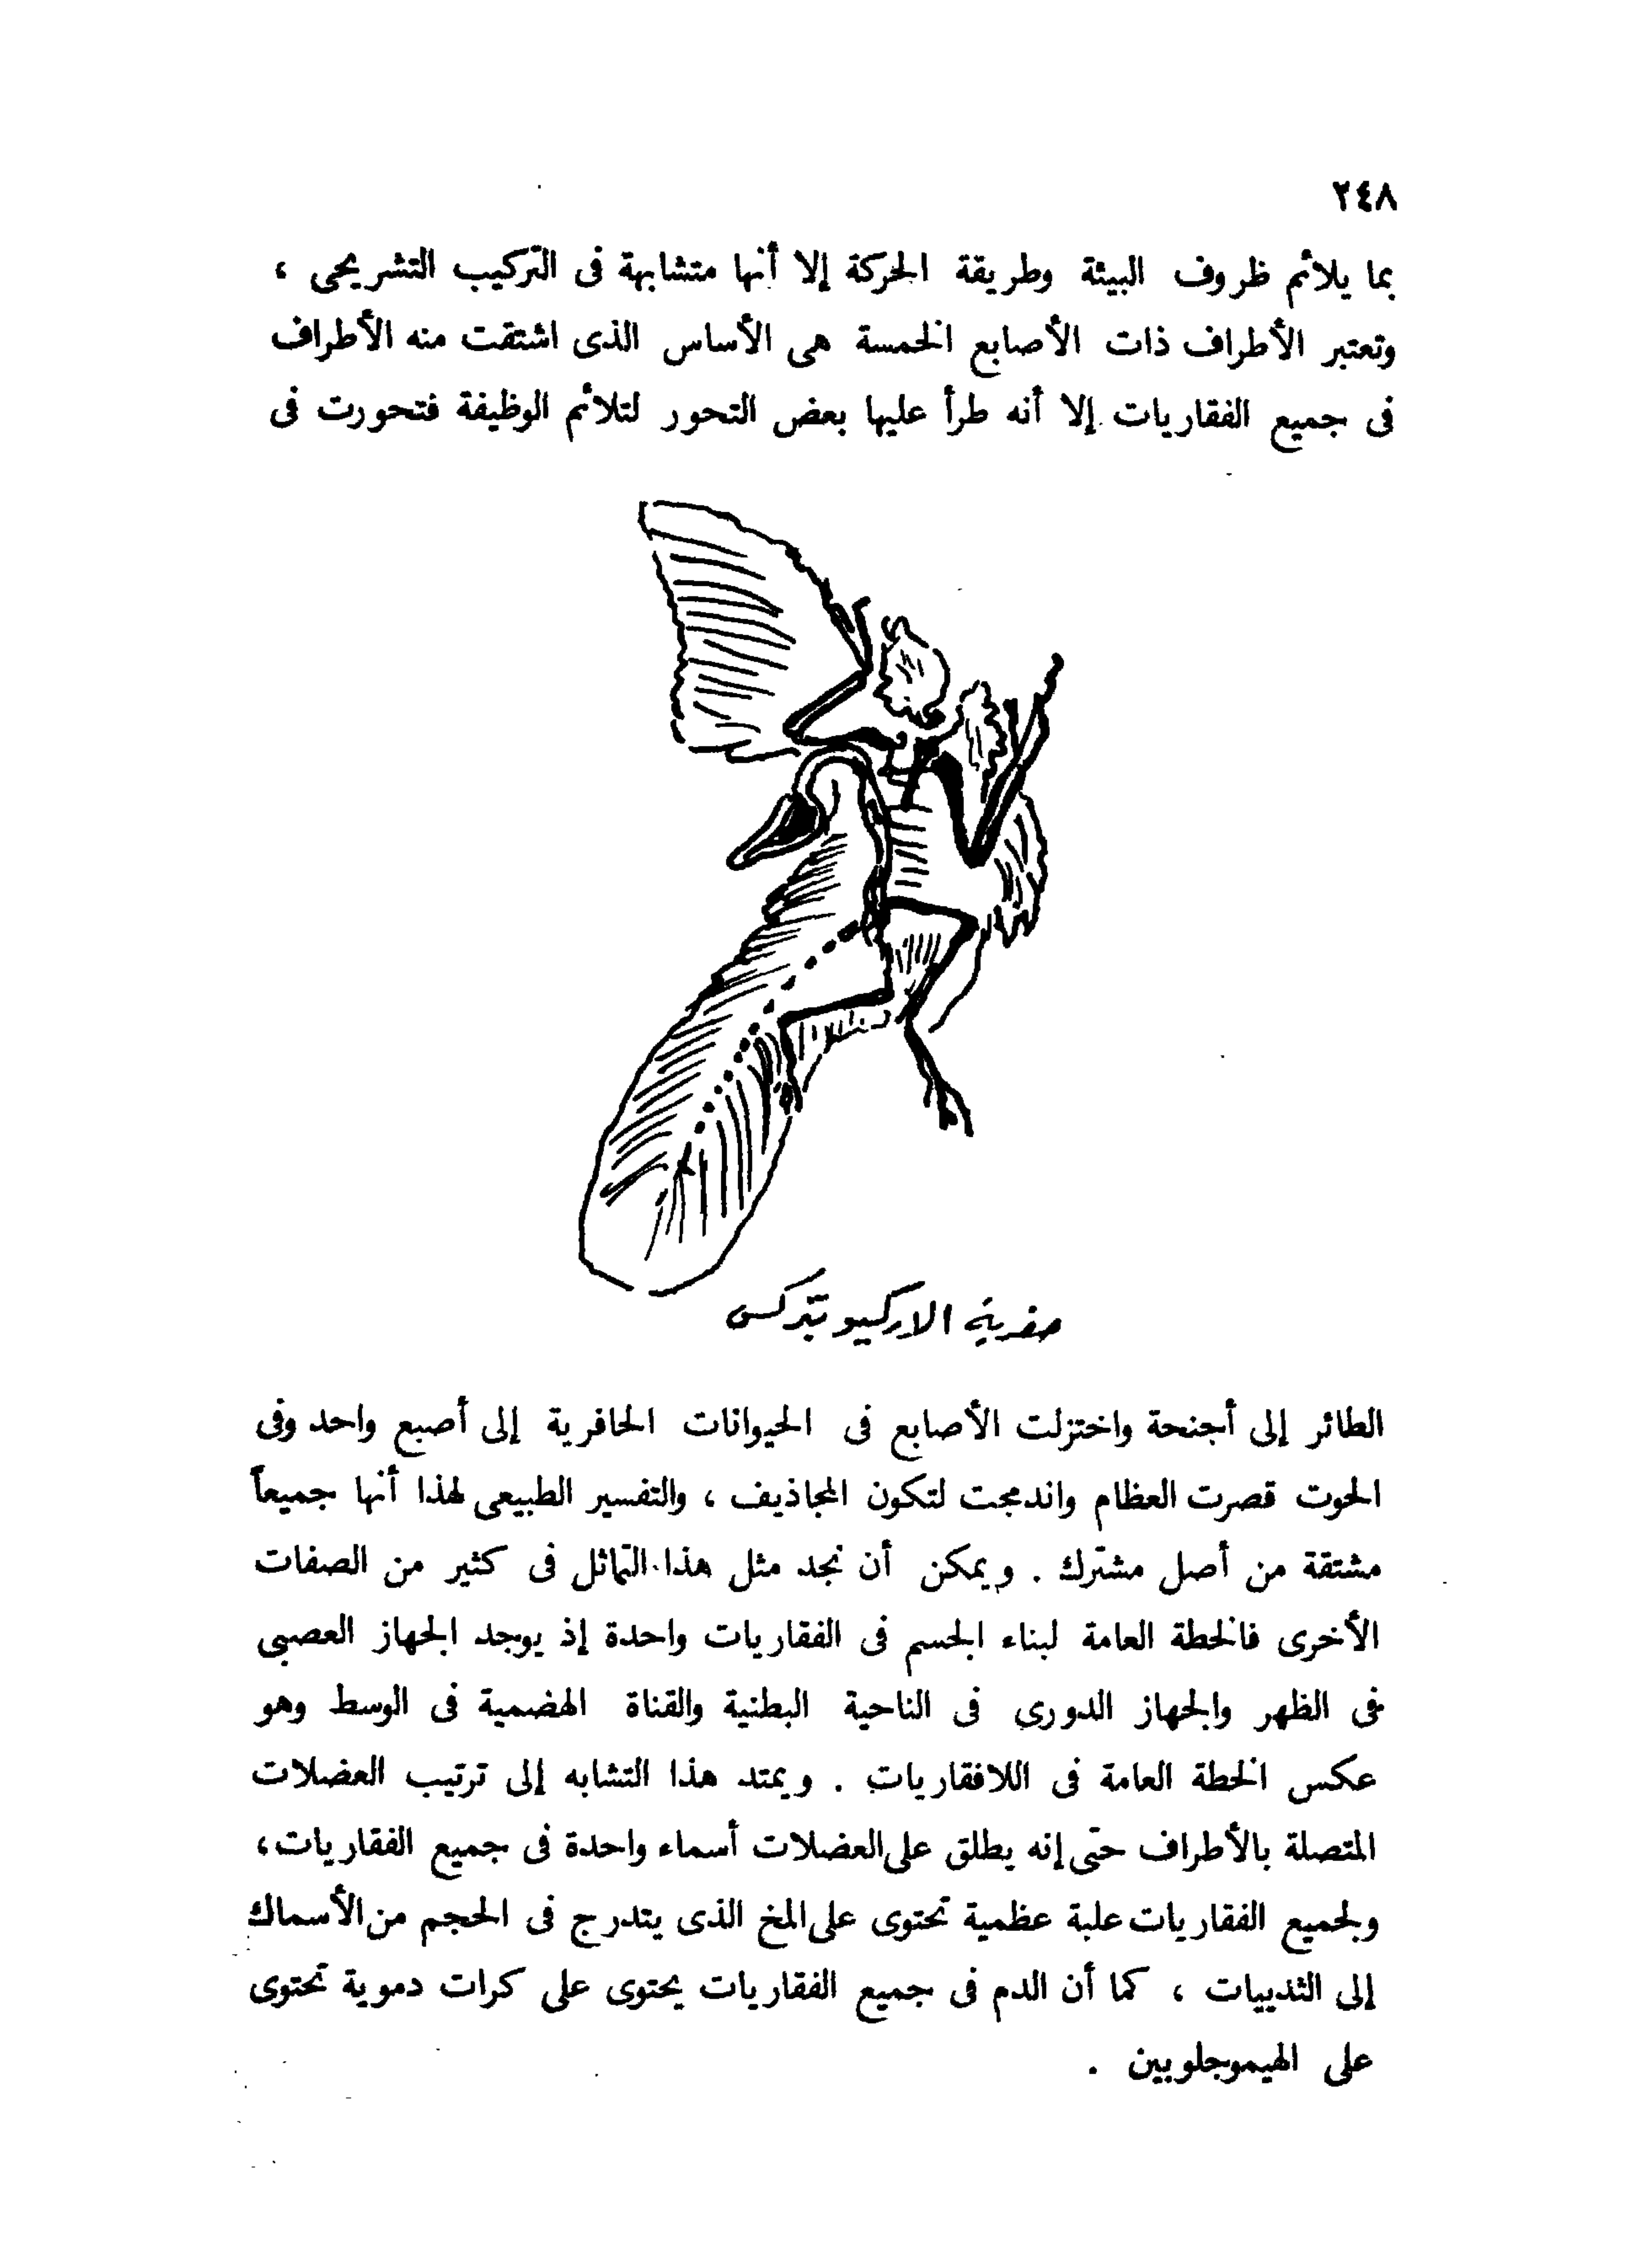 ٢٤٨
بما يلائم ظروف البيئة وطريقة الحركة إلا أنها متشابهة فى التركيب التشريحى ،
وتعتبر الأطراف ذات الأصابع الخمسة هى الأساس الذى اشتقت منه الأطراف
فى جميع الفقاريات إلا أنه طرأ عليها بعض التحور لتلائم الوظيفة فتحورت فى
حفرية الاركيوبتركس
الطائر إلى أجنحة واختزلت الأصابع فى الحيوانات الحافرية إلى أصبع واحد وفى
الحوت قصرت العظام واندمجت لتكون المجاذيف ، والتفسير الطبيعى لهذا أنها جميعاً
مشتقة من أصل مشترك . ويمكن أن نجد مثل هذا التماثل فى كثير من الصفات
الأخرى فالخطة العامة لبناء الجسم فى الفقاريات واحدة إذ يوجد الجهاز العصبى
فى الظهر والجهاز الدورى فى الناحية البطنية والقناة الهضمية فى الوسط وهو
عكس الخطة العامة فى اللافقاريات . ويمتد هذا التشابه إلى ترتيب العضلات
المتصلة بالأطراف حتى إنه يطلق على العضلات أسماء واحدة فى جميع الفقاريات ،
ولجميع الفقاريات علبة عظمية تحتوى على المخ الذى يتدرج فى الحجم من الأسماك
إلى الثدييات ، كما أن الدم فى جميع الفقاريات يحتوى على كرات دموية تحتوى
على الهيموجلوبين .